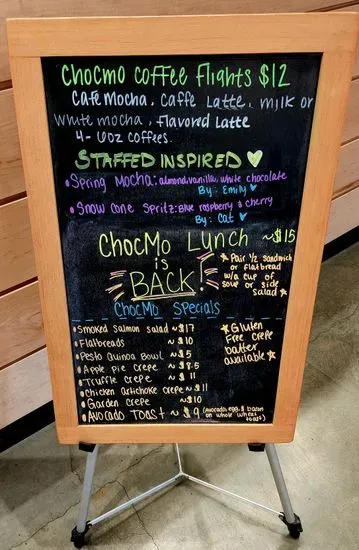 Chocmo Coffee Flights $12
Café Mocha, Caffe Latte, milk or
White mocha, Flavored Latte
4- 10oz coffees.
STAFFED INSPIRED
• Spring Mocha: almond, vanilla, white chocolate
By: Emily
• Snow cone Spritz: Blue raspberry & cherry
By: Cat
ChocMo Lunch ~$15
is
BACK!
* Pair 1/2 sandwich
or flatbread
w/a cup of
soup or side
salad *
ChocMo Specials
• Smoked salmon salad ~ $17
• Flatbreads ~ $10
• Pesto Quinoa Bowl ~ $5
• Apple Pie crepe ~ $8.5
• Truffle crepe ~ $11
• Chicken Artichoke crepe ~ $11
• Garden crepe ~ $10
• AVOCADO TOAST ~ $9 (Avocado, egg, & bacon
on whole wheat
toast)
* Gluten
Free crepe
batter
available *